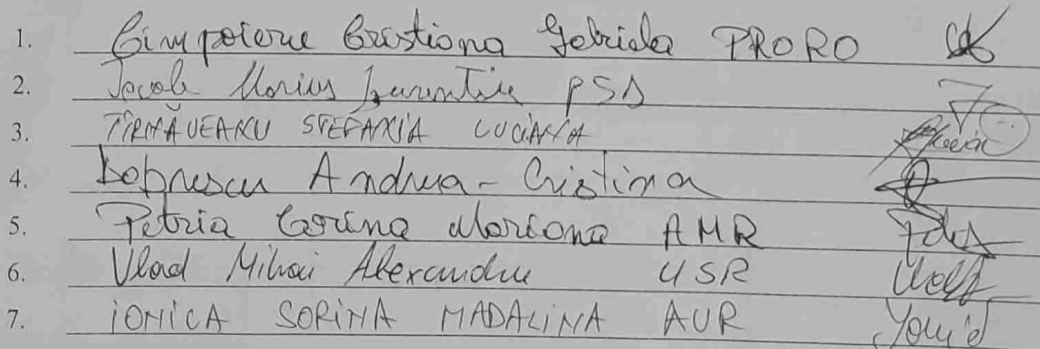 1. Cimpoieru Cristiana Gabriela PRORO
2. Iacob Marius Laurentiu PSD
3. TÎRNĂVEANU STEFANIA LUCIANA
4. Dobrescu Andreea-Cristina
5. Petria Corina Mariana AMR
6. Vlad Mihai Alexandru USR
7. IONICA SORINA MADALINA AUR